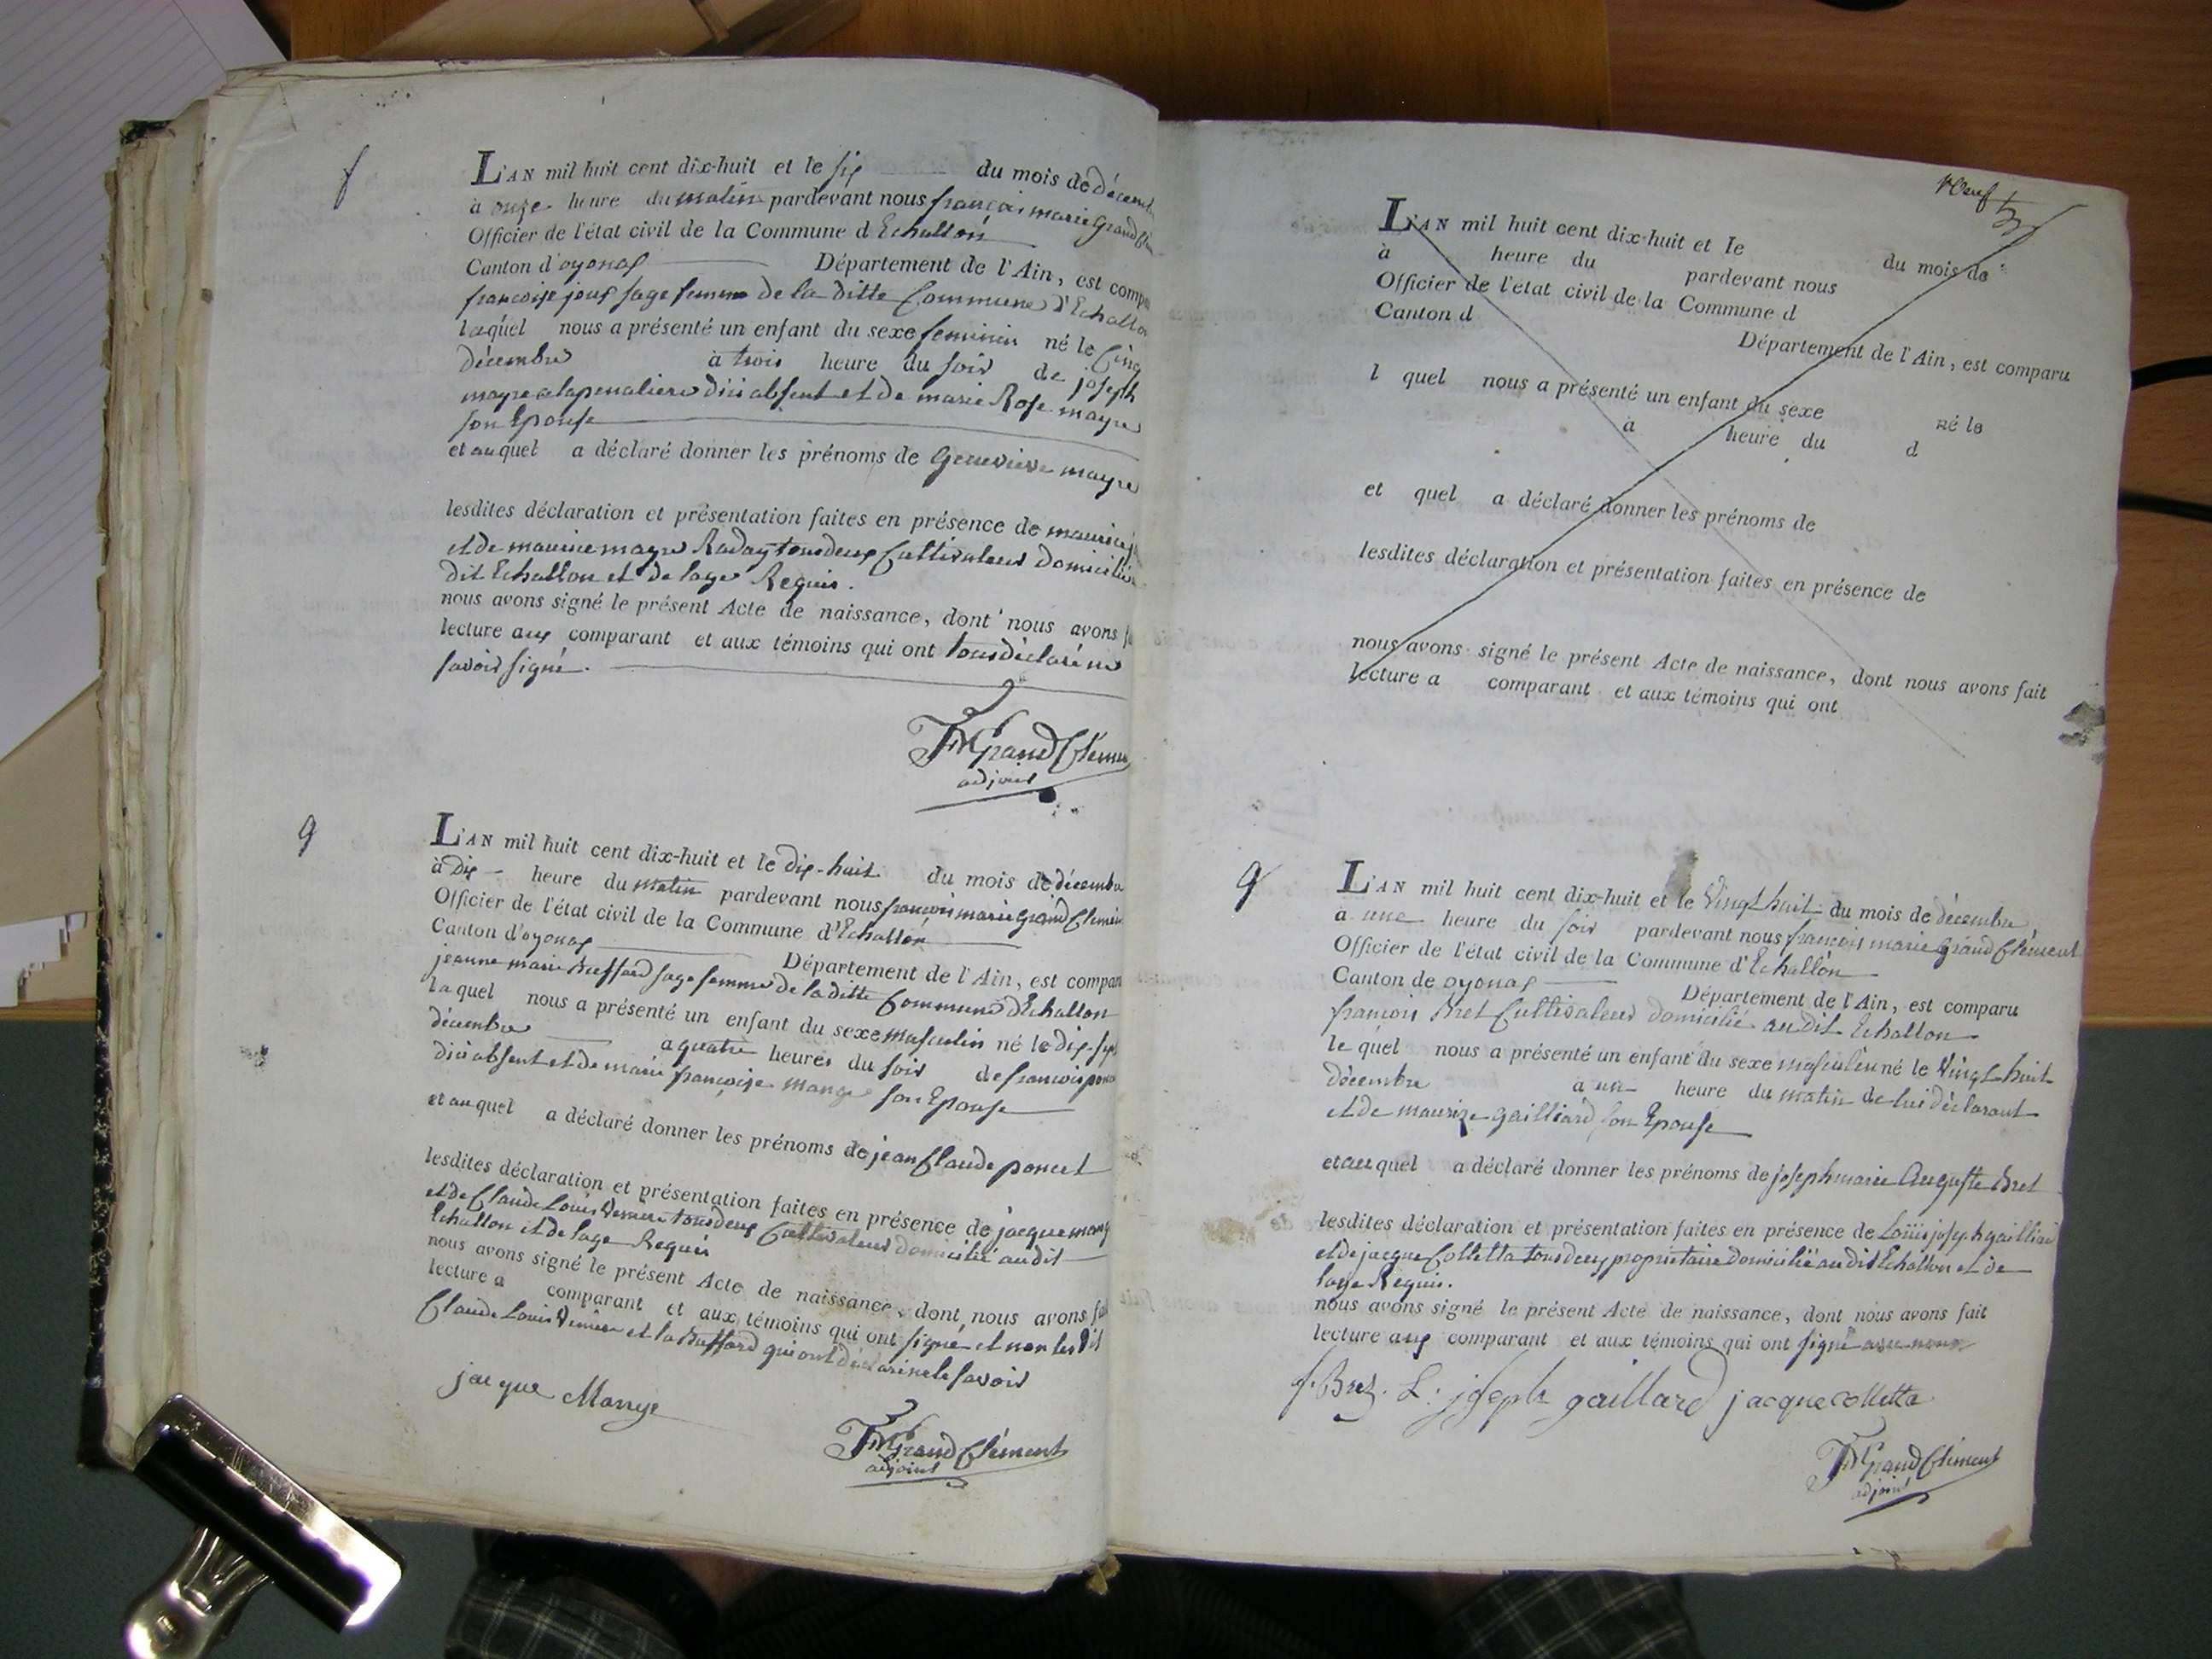 f
L'AN mil huit cent dix-huit et le six du mois de décemb
à onze heure du matin pardevant nous françois marie grand Clém
Officier de l'état civil de la Commune d'Echallon
Canton d'oyonax Département de l'Ain, est compa
françoise joux sage femme de la ditte Commune d'Echallon
laquel nous a présenté un enfant du sexe feminin né le Cinq
décembre à trois heure du soir de joseph
mayre dici absent et de marie Rose mayre
son Epouse
et auquel a déclaré donner les prénoms de Genevieve mayre
lesdites déclaration et présentation faites en présence de maurice
et de maurice mayre Raday tous deux Cultivateur domicilié
dit Echallon et de lage Requis.
nous avons signé le présent Acte de naissance, dont nous avons fa
lecture aux comparant et aux témoins qui ont tous déclaré ne
savoir signé.
FMGrand Clémen
adjoint
g
L'AN mil huit cent dix-huit et le dix-huit du mois de décembre
à Dix heure du matin pardevant nous françois marie grand Clément
Officier de l'état civil de la Commune d'Echallon
Canton d'oyonax Département de l'Ain, est compar
jeanne marie Buffard sage femme de la ditte Commune d'Echallon
laquel nous a présenté un enfant du sexe masculin né le dix-sept
décembre a quatre heures du soir de françois ponc
dici absent et de marie françoise Mange son Epouse
et au quel a déclaré donner les prénoms de jean Claude poncet
lesdites déclaration et présentation faites en présence de jacque mang
et de Claude Louis tous deux Cultivateur domicilié au dit
Echallon et de lage Requis
nous avons signé le présent Acte de naissance, dont nous avons fai
lecture a comparant et aux témoins qui ont signé et non les dit
Claude Louis et la Buffard qui ont déclaré ne le savoir
jacque Mange
FMGrand Clément
adjoint
Neuf
L'AN mil huit cent dix-huit et le du mois de
à heure du pardevant nous
Officier de l'état civil de la Commune d
Canton d Département de l'Ain, est comparu
l quel nous a présenté un enfant du sexe né le
à heure du d
et quel a déclaré donner les prénoms de
lesdites déclaration et présentation faites en présence de
nous avons signé le présent Acte de naissance, dont nous avons fait
lecture a comparant et aux témoins qui ont
g
L'AN mil huit cent dix-huit et le Vingt huit du mois de décembre
à une heure du soir pardevant nous françois marie grand Clément
Officier de l'état civil de la Commune d'Echallon
Canton de oyonax Département de l'Ain, est comparu
françois Bret Cultivateur domicilié au dit Echallon
le quel nous a présenté un enfant du sexe masculin né le Vingt huit
décembre à un heure du matin de lui déclarant
et de maurize gailliard son Epouse
et au quel a déclaré donner les prénoms de joseph marie Auguste Bret
lesdites déclaration et présentation faites en présence de Louis joseph gailliard
et de jacque Colletta tous deux propriétaire domicilié au dit Echallon et de
lage Requis.
nous avons signé le présent Acte de naissance, dont nous avons fait
lecture aux comparant et aux témoins qui ont signé avec nous
f. Bret. L. joseph gaillard jacque colletta
FMGrand Clément
adjoint